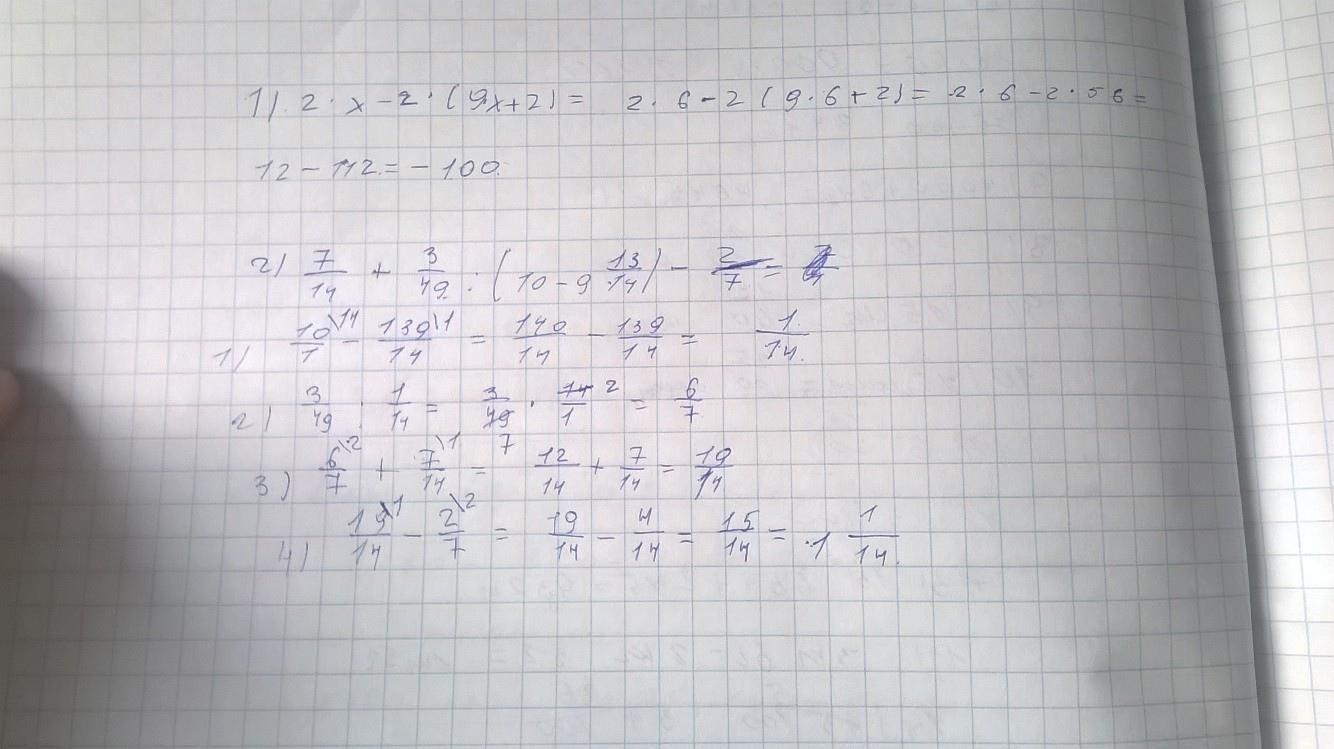 1) 2 · x - 2 · (9x+2) = 2 · 6 - 2 (9 · 6 + 2) = 2 · 6 - 2 · 56 =
12 - 112 = - 100
2) 7/14 + 3/49 : (10 - 9 13/14) - 2/7 =
1) 10/1\14 - 139/14\1 = 140/14 - 139/14 = 1/14
2) 3/49 : 1/14 = 3/49 7 · 14/1 2 = 6/7
3) 6/7\2 + 7/14\1 = 12/14 + 7/14 = 19/14
4) 19/14\1 - 2/7\2 = 19/14 - 4/14 = 15/14 = 1 1/14